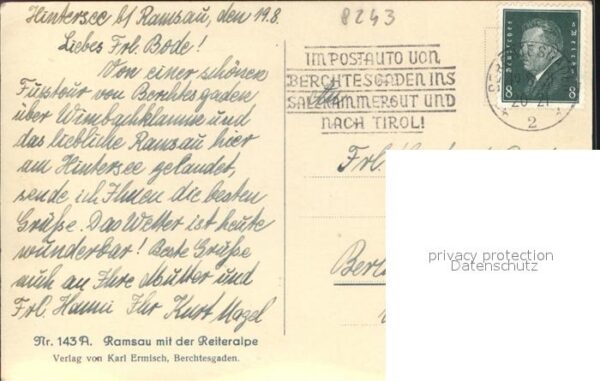 Hintersee b/ Ramsau, den 19.8.
Liebes Frl. Bode!
Von einer schönen
Fusstour von Berchtesgaden
über Wimbachklamm und
das liebliche Ramsau hier
am Hintersee gelandet,
sende ich Ihnen die besten
Grüße. Das Wetter ist heute
wunderbar! Beste Grüße
auch an Ihre Mutter und
Frl. Hanni Ihr Kurt
Nr. 143A. Ramsau mit der Reiteralpe
Verlag von Karl Ermisch, Berchtesgaden.
8243
IM POSTAUTO VON
BERCHTESGADEN INS
SALZKAMMERGUT UND
NACH TIROL!
8 8
2
Frl.
Berl
privacy protection
Datenschutz